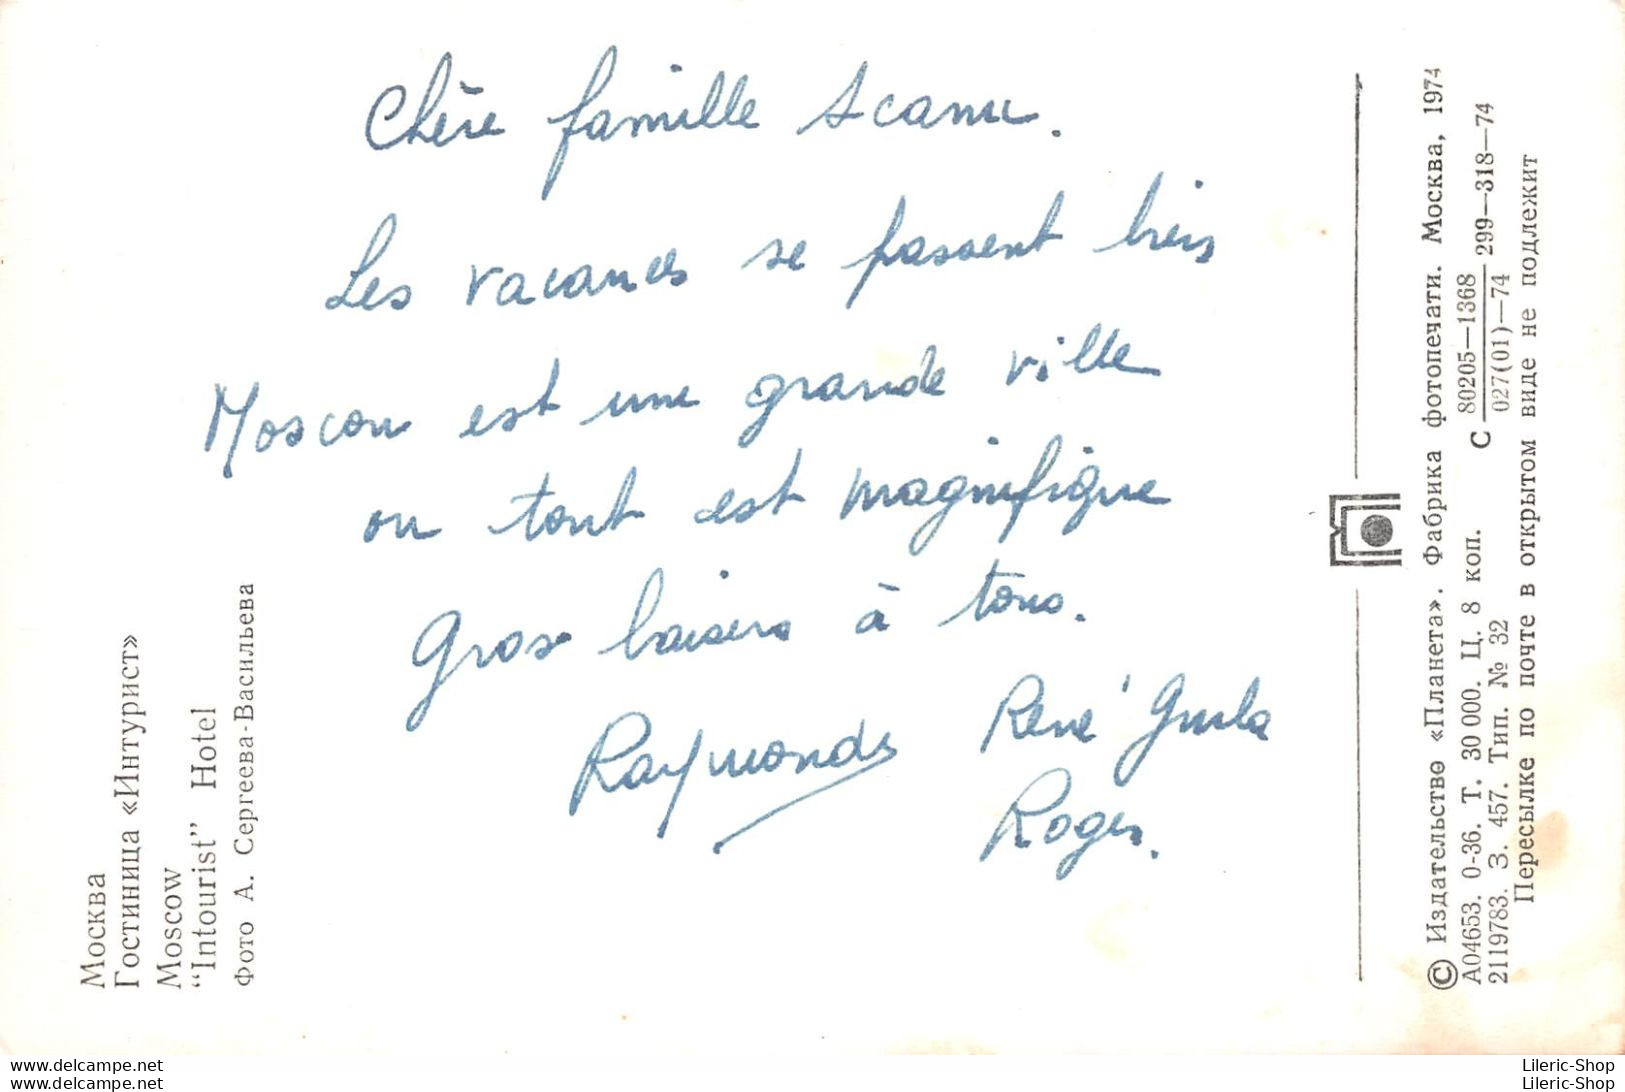 Chère famille Scanu.
Les vacances se passent bien
Moscou est une grande ville
ou tout est magnifique
Gros baisers à tous.
Raymonde René
Roger.
Москва
Гостиница «Интурист»
Moscow
“Intourist” Hotel
Фото А. Сергеева-Васильева
© Издательство «Планета». Фабрика фотопечати. Москва, 1974
А04653. 0-36. Т. 30 000. Ц. 8 коп. С 80205—1368 299—318—74
027(01)—74
2119783. З. 457. Тип. № 32
Пересылке по почте в открытом виде не подлежит
delcampe.net
delcampe.net
Lileric-Shop
Lileric-Shop